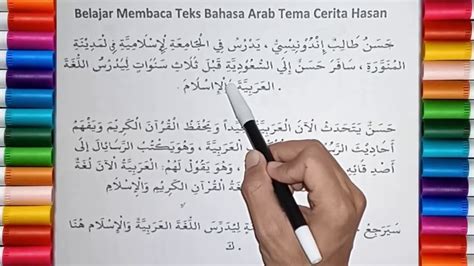 Belajar Membaca Teks Bahasa Arab Tema Cerita Hasan
حَسَنٌ طَالِبٌ إِنْدُونِيْسِيٌّ ، يَدْرُسُ فِي الْجَامِعَةِ الْإِسْلَامِيَّةِ فِي الْمَدِيْنَةِ
الْمُنَوَّرَةِ، سَافَرَ حَسَنٌ إِلَي السُّعُوْدِيَّةِ قَبْلَ ثَلَاثِ سَنَوَاتٍ لِيَدْرُسَ اللُّغَةَ
الْعَرَبِيَّةَ وَالْإِسْلَامَ .
حَسَنٌ يَتَحَدَّثُ الْآنَ الْعَرَبِيَّةَ جَيِّداً وَيَحْفَظُ الْقُرْآنَ الْكَرِيْمَ وَيَفْهَمُ
أَحَادِيْثَ الرَّ ، وَهُوَ يَكْتُبُ الرَّسَائِلَ إِلَى
أَصْدِقَائِهِ ، وَهُوَ يَقُوْلُ لَهُمْ: الْعَرَبِيَّةُ الْآنَ لُغَةٌ
لُغَةُ الْقُرْآنِ الْكَرِيْمِ وَالْإِسْلَامِ
سَيَرْجِعُ لِيُدَرِّسَ اللُّغَةَ الْعَرَبِيَّةَ وَالْإِسْلَامَ هُنَا
كَ .